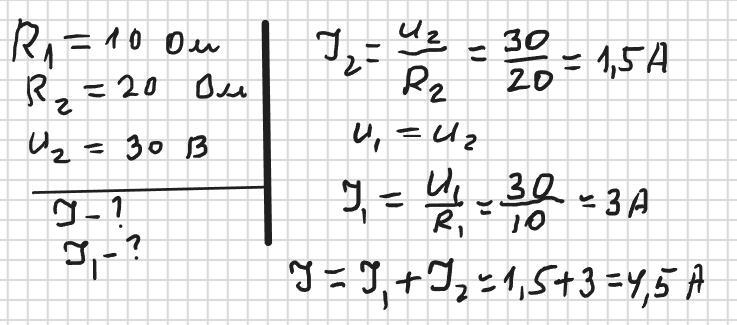 R₁ = 10 Ом
R₂ = 20 Ом
U₂ = 30 В
J - ?
J₁ - ?
J₂ = U₂/R₂ = 30/20 = 1,5 А
U₁ = U₂
J₁ = U₁/R₁ = 30/10 = 3 А
J = J₁ + J₂ = 1,5 + 3 = 4,5 А